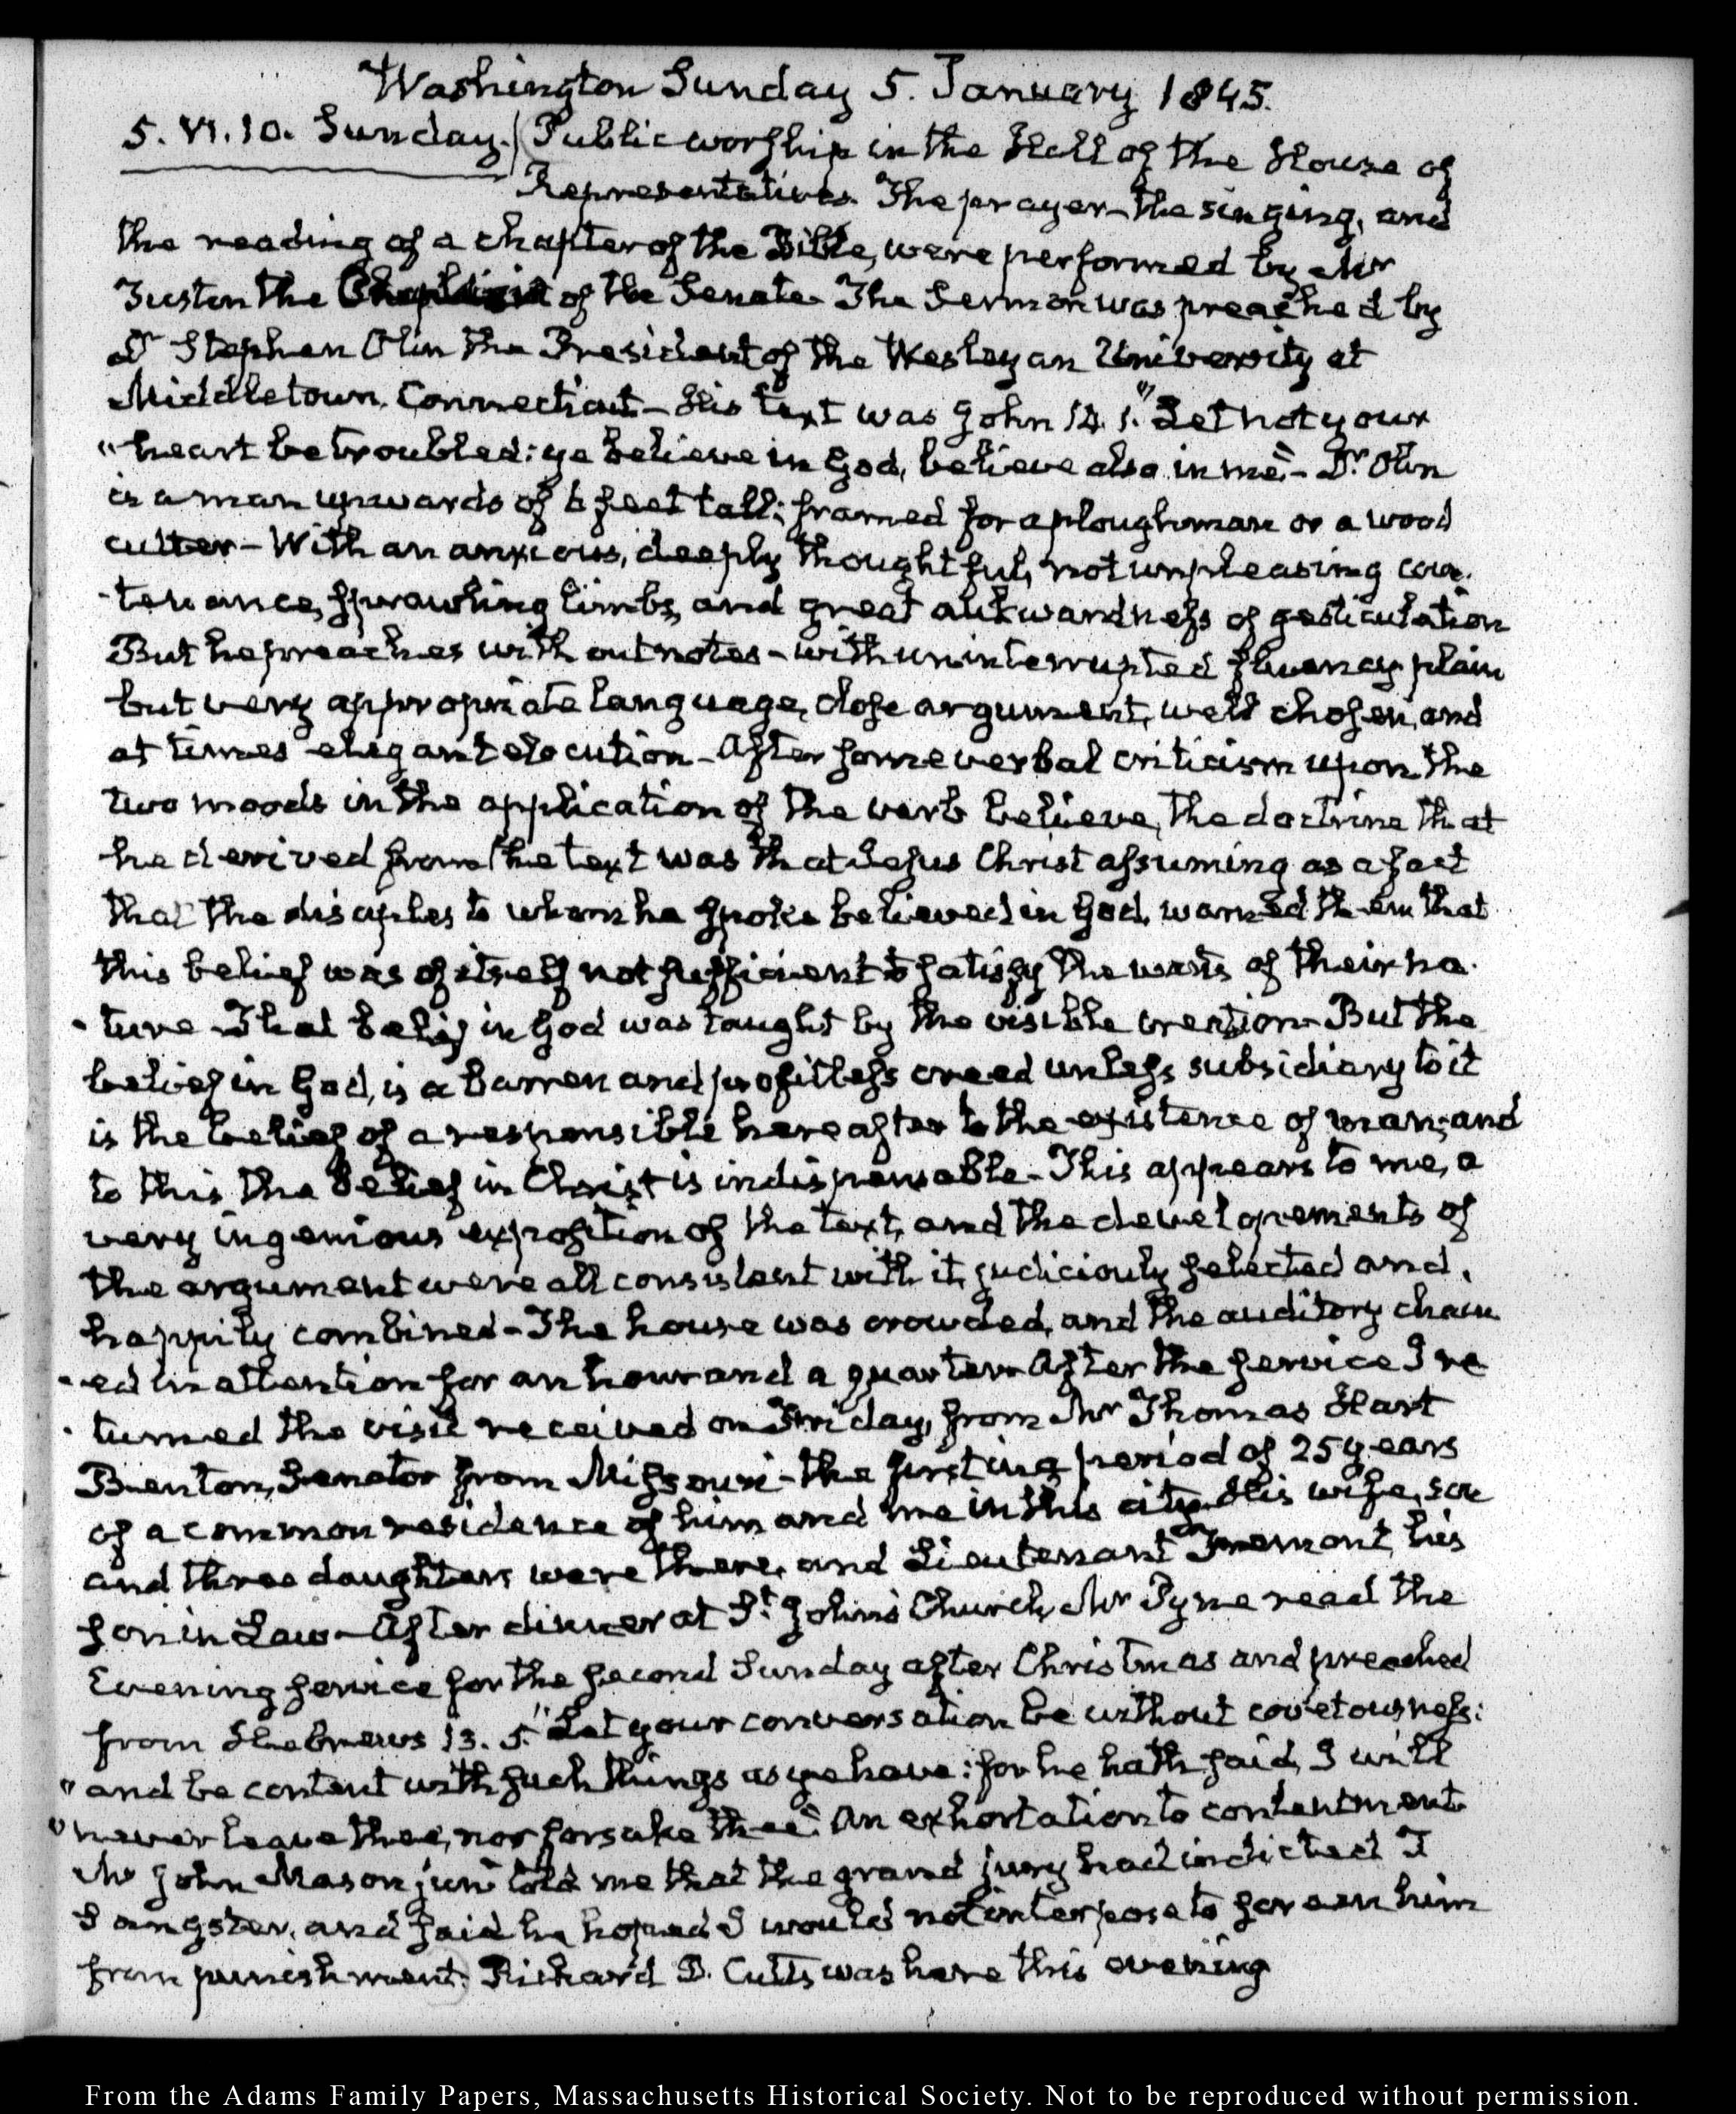 Washington Sunday 5. January 1845.
5. VI.10. Sunday. Public worship in the Hall of the House of
Representatives. The prayer—the singing, and
the reading of a chapter of the Bible, were performed by Mr
Tustin the Chaplain of the Senate. The Sermon was preached by
Dr Stephen Olin the President of the Wesleyan University at
Middletown, Connecticut—His text was John 14. 1. "Let not your
"heart be troubled: ye believe in God, believe also in me."—Dr Olin
is a man upwards of 6 feet tall; framed for a ploughman or a wood
cutter—With an anxious, deeply thoughtful, not unpleasing coun-
-tenance, sprawling limbs, and great aukwardness of gesticulation
But he preaches without notes—with uninterrupted fluency plain
but very appropriate language, close argument, well chosen, and
at times elegant elocution—After some verbal criticism upon the
two moods in the application of the verb believe, the doctrine that
he derived from the text was that Jesus Christ assuming as a fact
that the disciples to whom he spoke believed in God, warned them that
this belief was of itself not sufficient to satisfy the wants of their na-
-ture—That belief in God was taught by the visible creation—But the
belief in God, is a barren and profitless creed unless subsidiary to it
is the belief of a responsible hereafter to the existence of man; and
to this the belief in Christ is indispensable—This appears to me, a
very ingenious exposition of the text, and the developements of
the argument were all consistent with it, judiciously selected and
happily combined—The house was crowded, and the auditory chain
-ed in attention for an hour and a quarter. After the service I re
-turned the visit received on Friday, from Mr Thomas Hart
Benton, Senator from Missouri—the first in a period of 25 years
of a common residence of him and me in this city. His wife, son
and three daughters were there, and Lieutenant Fremont, his
son in Law—After dinner at St. John's Church, Mr Pyne read the
Evening service for the second Sunday after Christmas and preached
from Hebrews 13. 5. "Let your conversation be without covetousness:
"and be content with such things as ye have: for he hath said, I will
"never leave thee, nor forsake thee." An exhortation to contentment
Mr John Mason junr told me that the grand jury had indicted T
Sangster, and said he hoped I would not interpose to screen him
from punishment. Richard D. Cutts was here this evening
From the Adams Family Papers, Massachusetts Historical Society. Not to be reproduced without permission.